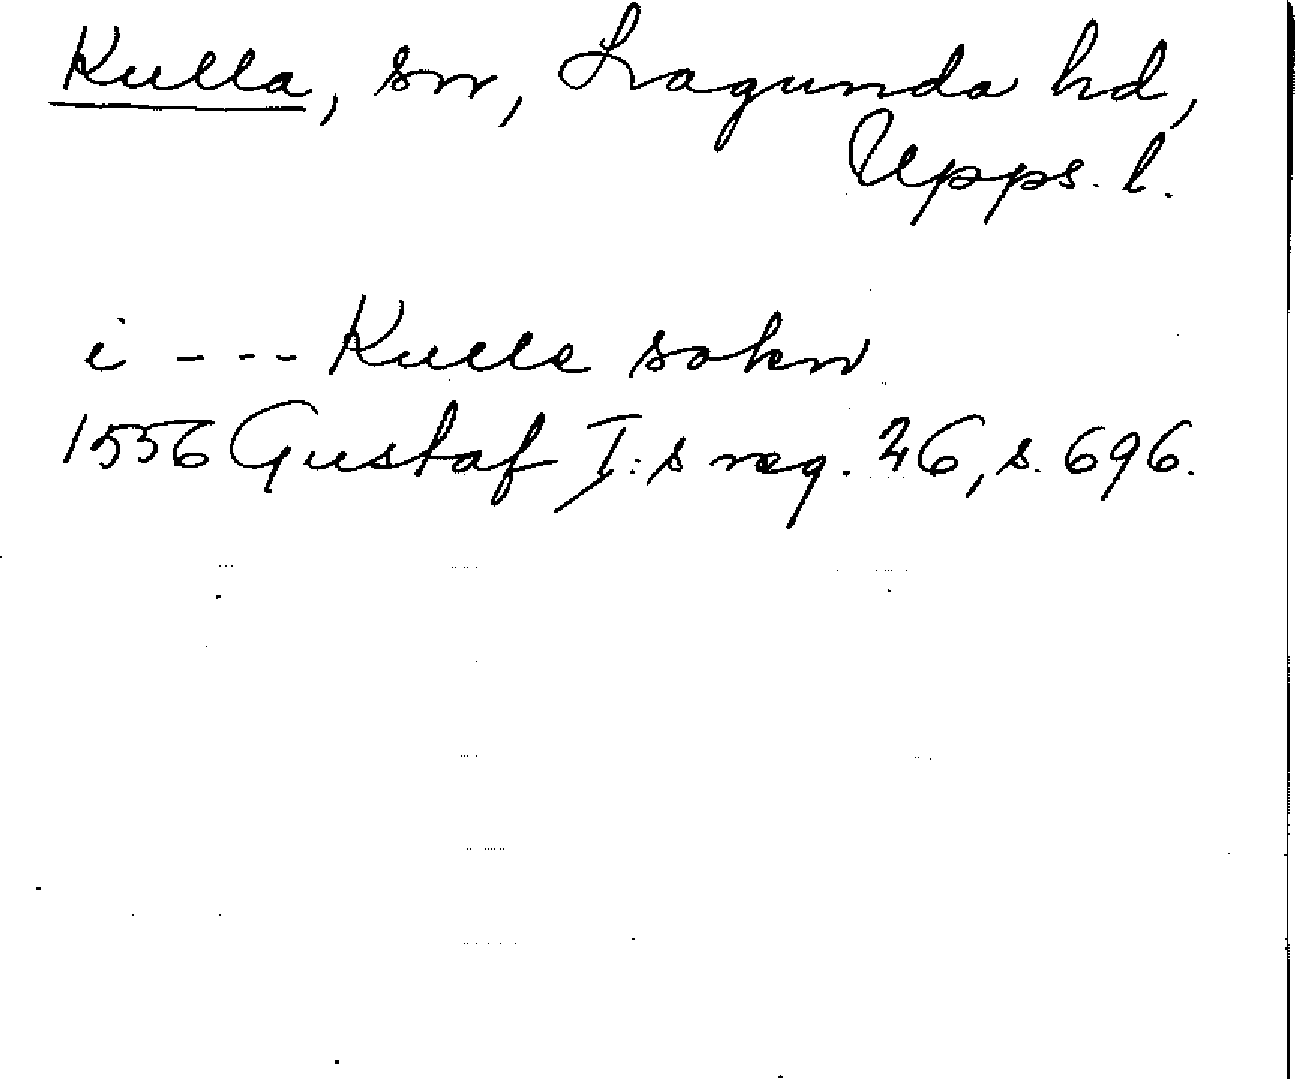 Kulla, sn, Lagunda hd,
Upps. l.
i --- Kulle sokn
1556 Gustaf I:s reg. 26, s. 696.